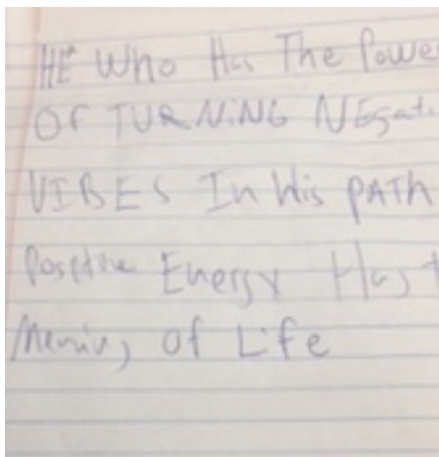 HE Who Has The Powe
Of TURNiNG NEgati
VIBES In His PATH
Positive Energy Has t
Mening of Life